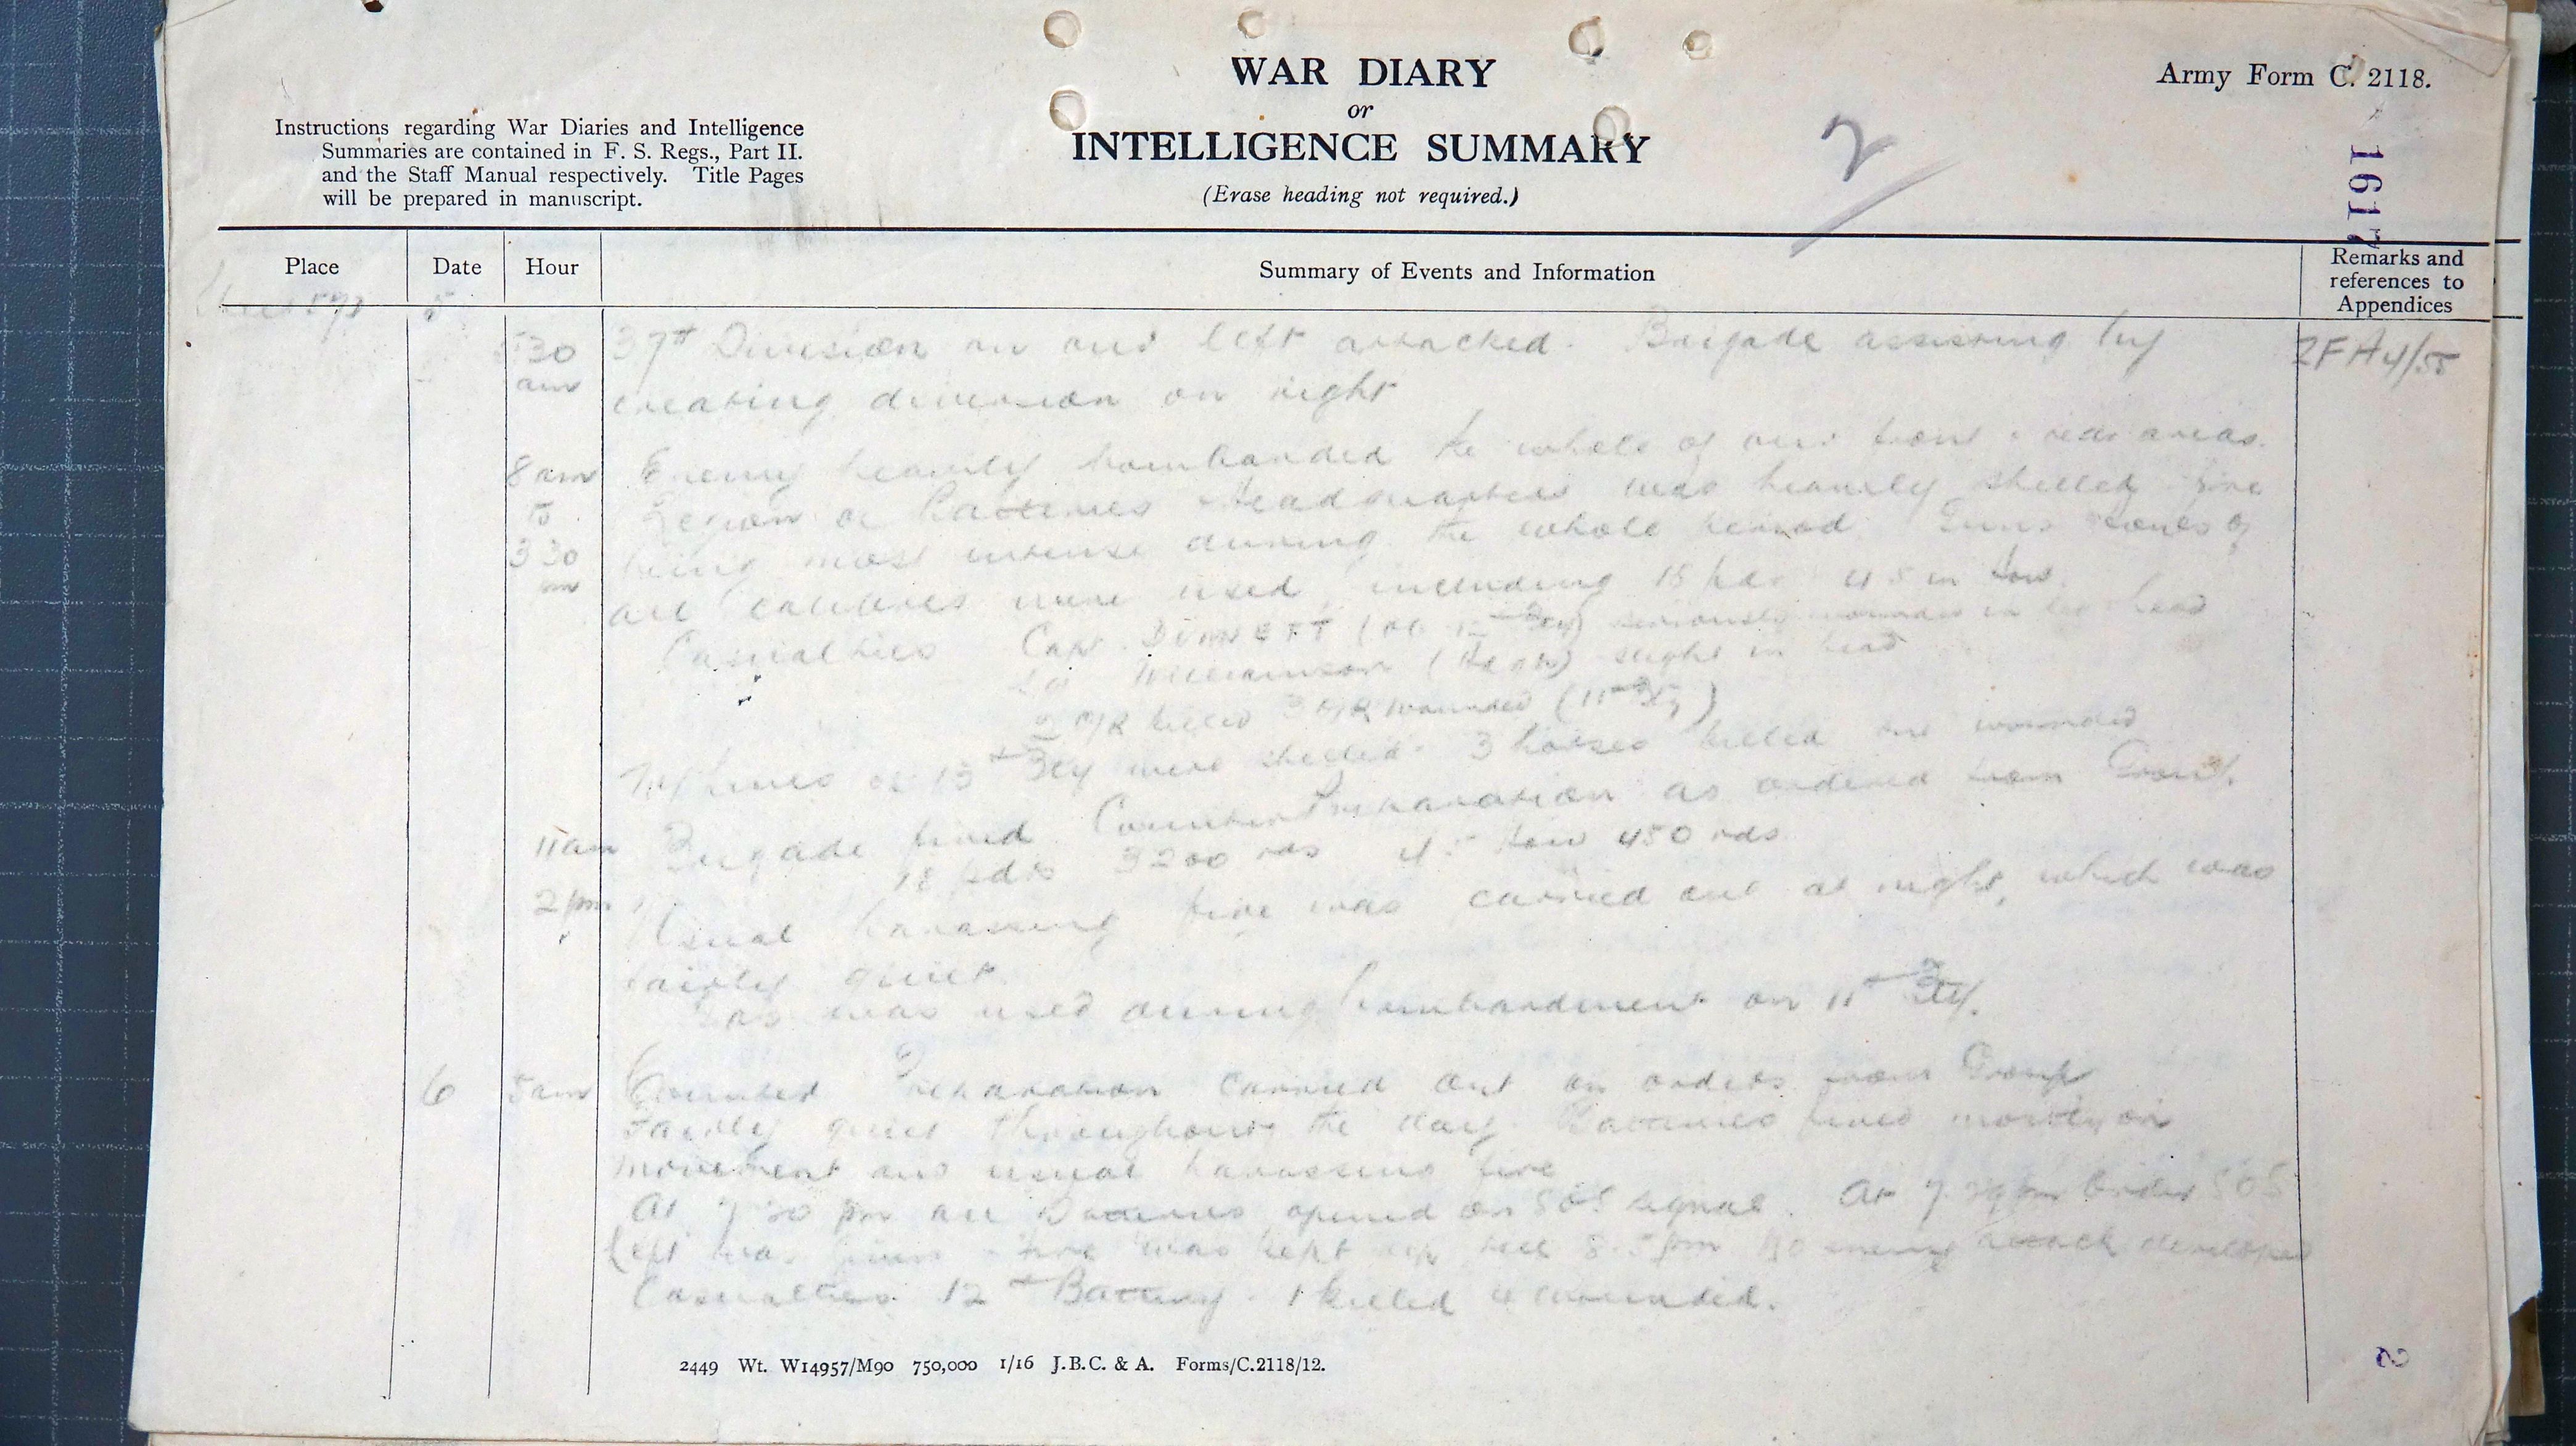 WAR DIARY
or
INTELLIGENCE SUMMARY
(Erase heading not required.)
Army Form C. 2118.
Instructions regarding War Diaries and Intelligence
Summaries are contained in F. S. Regs., Part II.
and the Staff Manual respectively. Title Pages
will be prepared in manuscript.
2
Place Date Hour Summary of Events and Information Remarks and
references to
Appendices
5
5 30 37th Division on our left attacked. Brigade assisting by 2FA4/55
am creating diversion on right
8 am Enemy heavily bombarded the whole of our front & rear areas.
to Batteries Headquarters was heavily shelled fire
3 30 being most intense during the whole period Guns
pm all calibres were used, including 18 pdr 4.5 in How.
Casualties Capt. seriously wounded in head
Williamson slight in head
2 O/R killed 3 O/R wounded (11th Bty)
lines of 13th Bty were shelled. 3 horses killed one wounded
11 am Brigade fired Counter Preparation as ordered from Group.
18 pdrs 3200 rds 4.5 How 450 rds
2 pm Usual harassing fire was carried out at night, which was
fairly quiet.
Gas was used during bombardment on 11th Bty.
6 5 am Counter Preparation carried out on orders from Group
Fairly quiet throughout the day. Batteries fired mostly on
movement and usual harassing fire
At 7 30 pm all Batteries opened on SOS signal. At 7. pm order SOS
Left was given. Fire was kept up till 8.5 pm No enemy attack developed
Casualties. 12th Battery. 1 killed 4 wounded.
2449 Wt. W14957/M90 750,000 1/16 J.B.C. & A. Forms/C.2118/12.
2